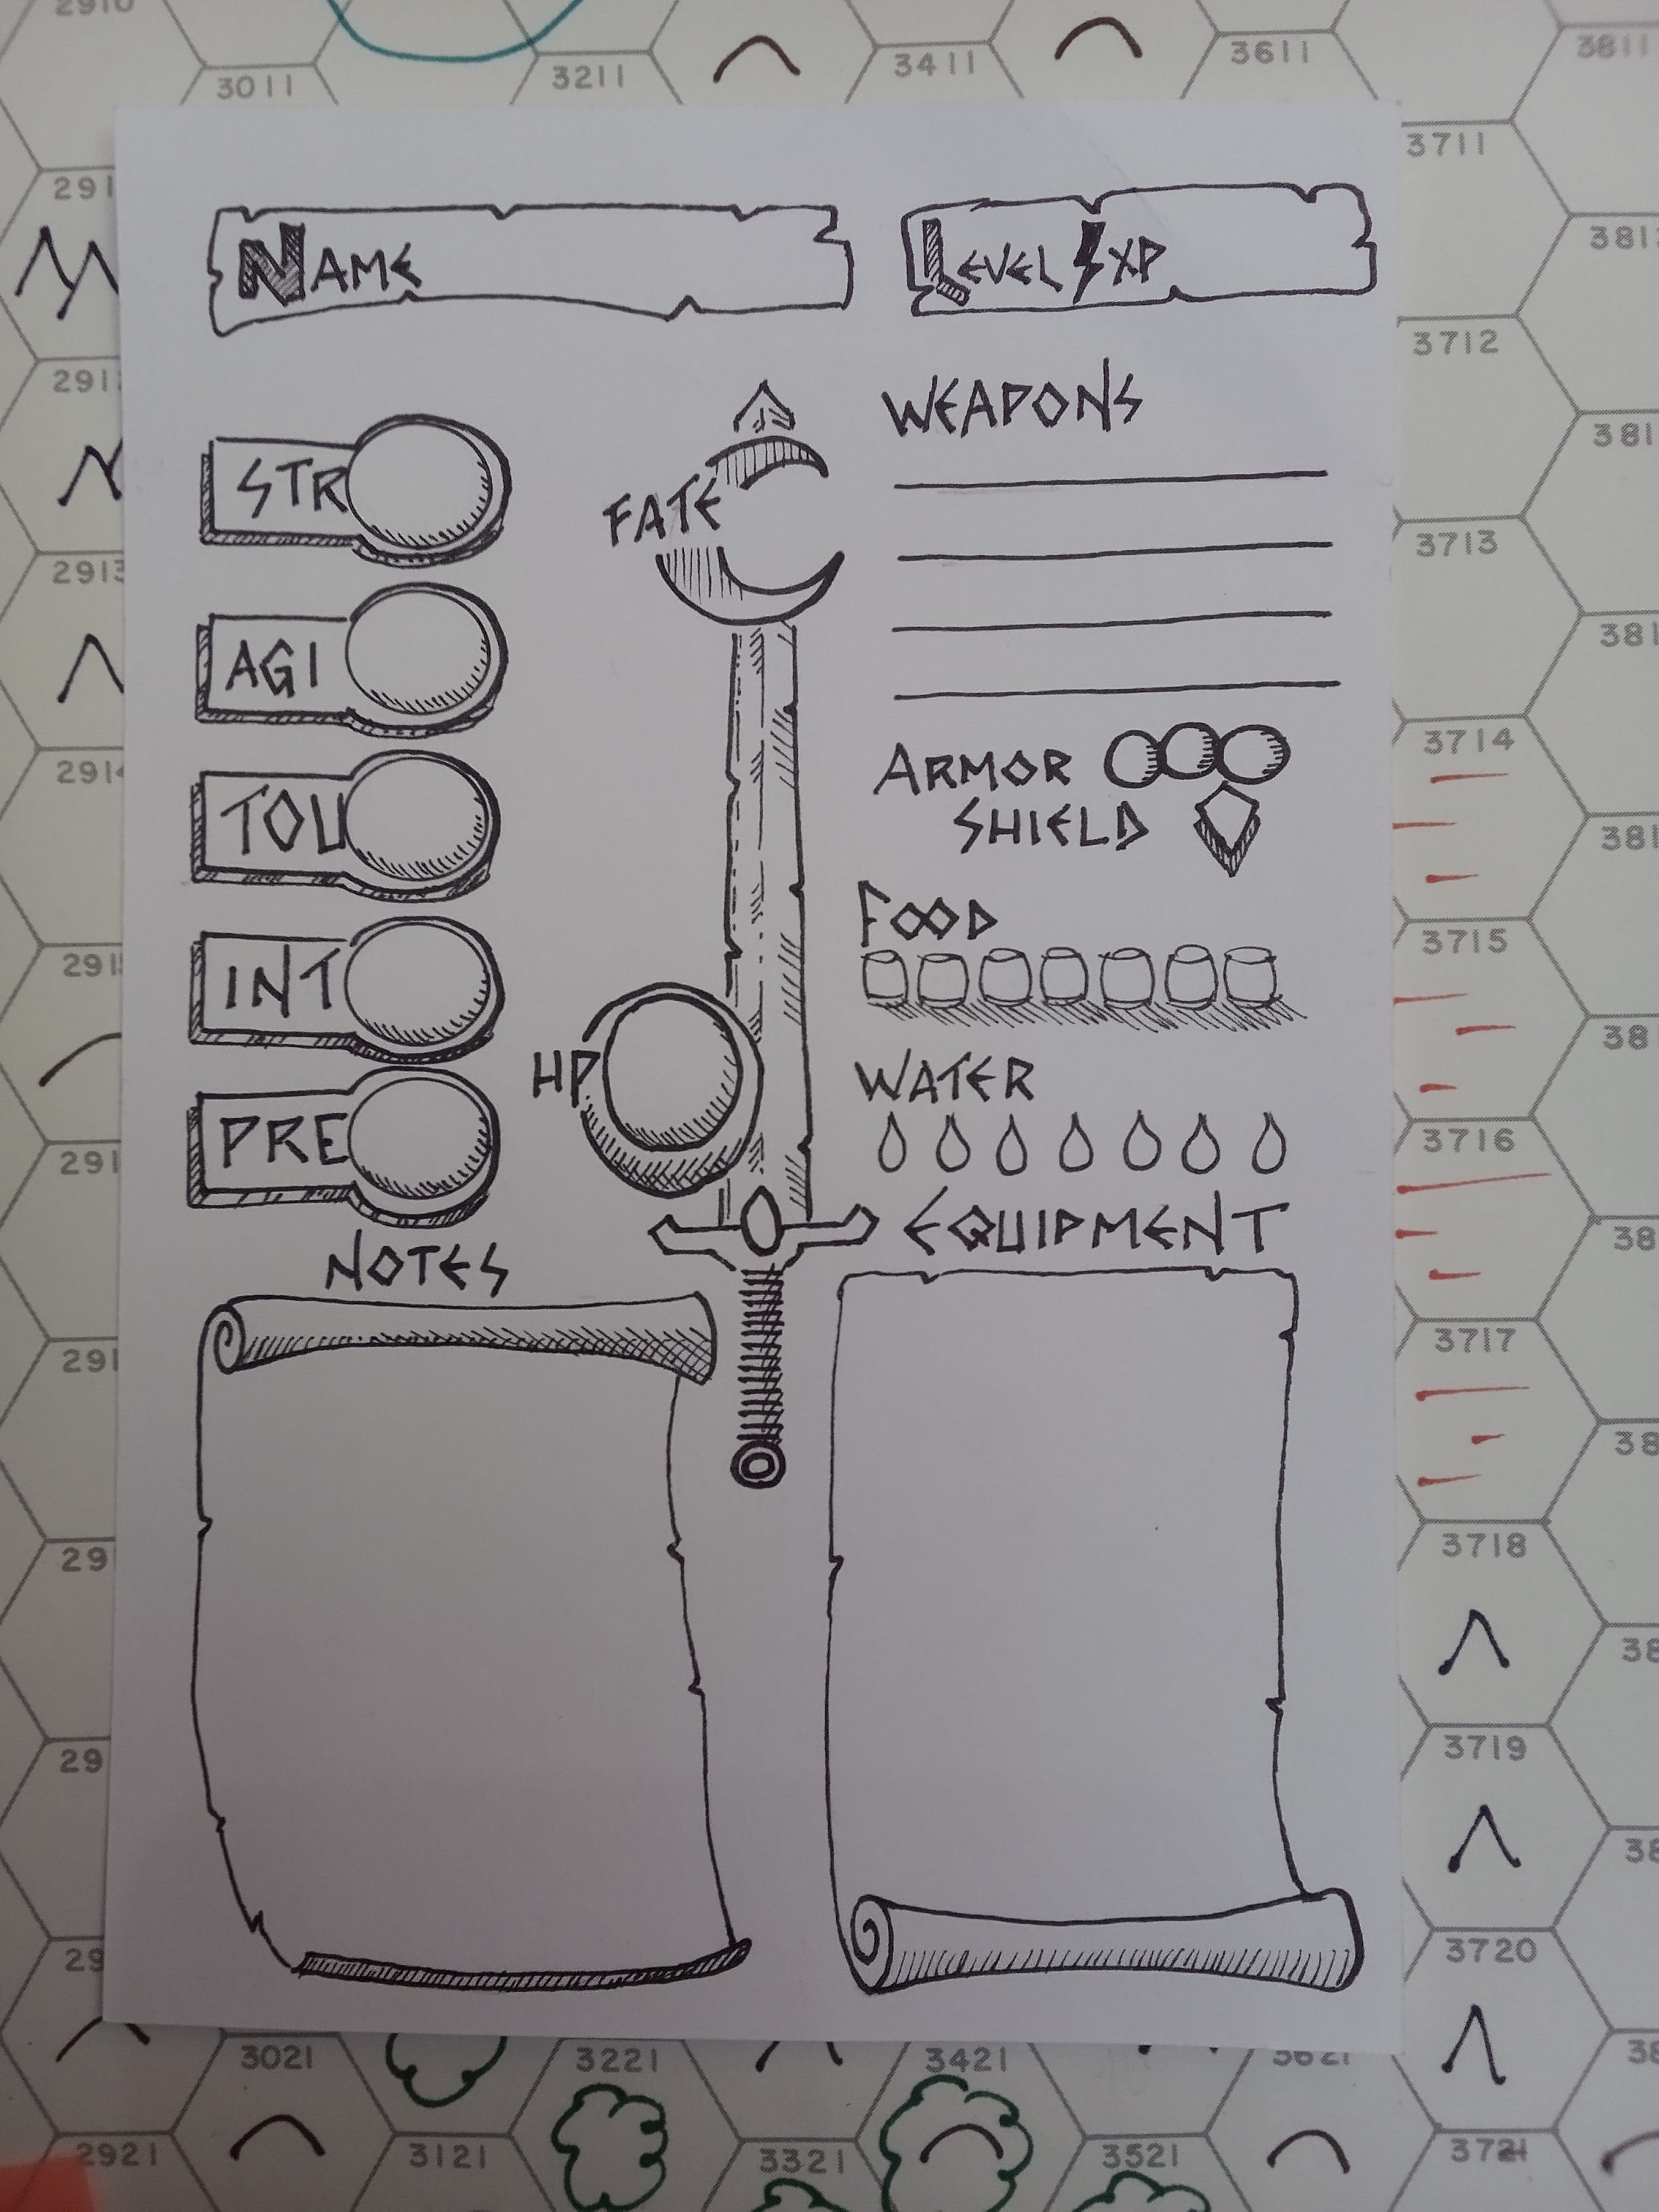 2910
3011
3211
3411
3611
3811
3711
3712
3713
3714
3715
3716
3717
3718
3719
3720
3721
2913
NAME
LEVEL XP
STR
AGI
TOU
INT
PRE
FATE
HP
WEAPONS
ARMOR
SHIELD
FOOD
WATER
EQUIPMENT
NOTES
3021
3221
3421
3621
2921
3121
3321
3521